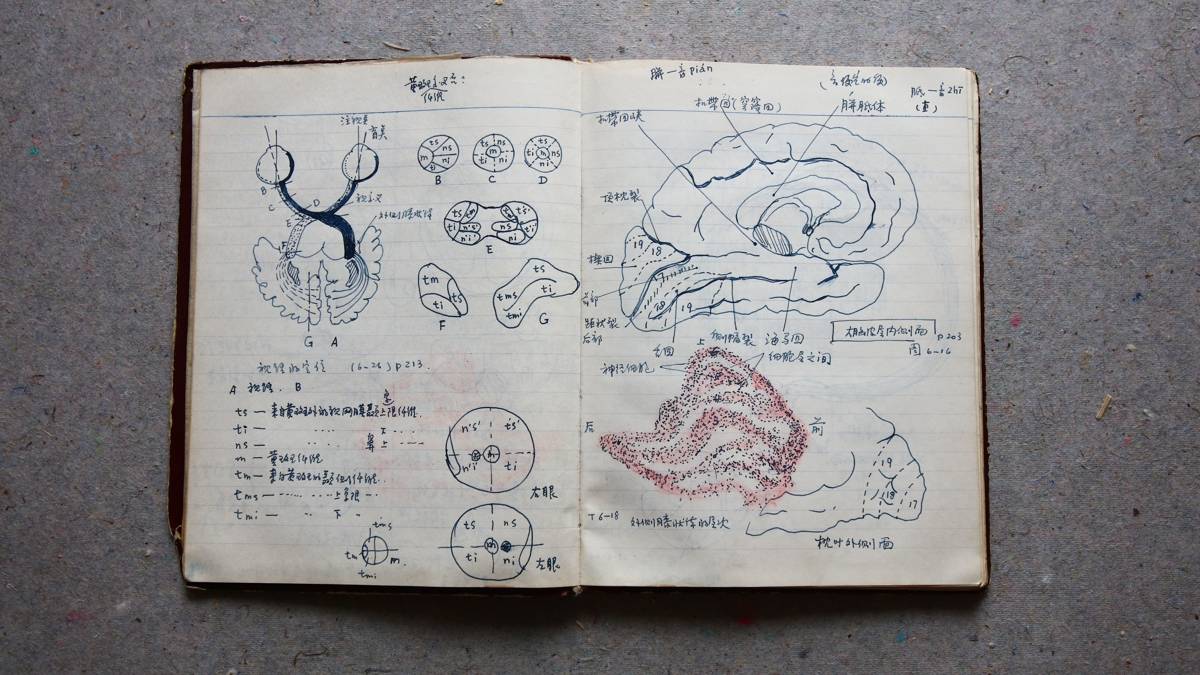 黄斑交叉:
纤维
注视点
盲点
视交叉
外侧膝状体
B
C
D
E
F
G A
ts ns
m
ti ni
B
ts ns
m
ti ni
C
ts ns
m
ti ni
D
ts t's'
ti n's' ns t'i'
n'i' ni
E
tm
ts
ti
F
ts
ti
tms
tmi
G
视路的定位 (6-26) p213.
A 视路. B
ts — 来自黄斑以外的视网膜颞上限纤维.
ti — 下
ns — 鼻上
m — 黄斑纤维
tm — 来自黄斑的颞侧纤维.
tms — 上象限
tmi — 下
tms
tm m.
tmi
n's' t's'
m
n'i' ti
右眼
ts ns
m
ti ni
左眼
胼一音pián
胝一音zhī
扣带回(穹窿回)
胼胝体
扣带回峡
顶枕裂
楔回
前部
距状裂
后部
舌回
侧幅裂
海马回
19
18
18
19
大脑半层内侧面 p203
图 6-16
上
神经细胞
细胞层之间
后
前
T 6-18 外侧膝状体的层次
19
18
17
枕叶外侧面